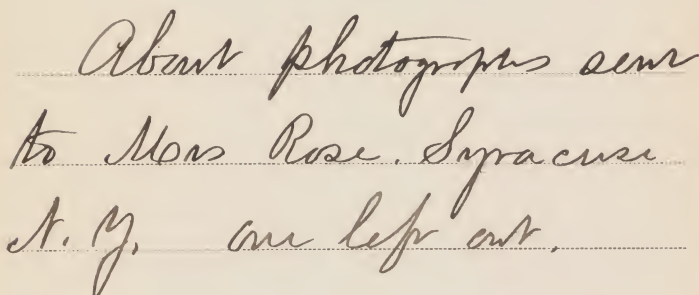 About photographs sent
to Mrs Rose. Syracuse
N. Y. one left out.